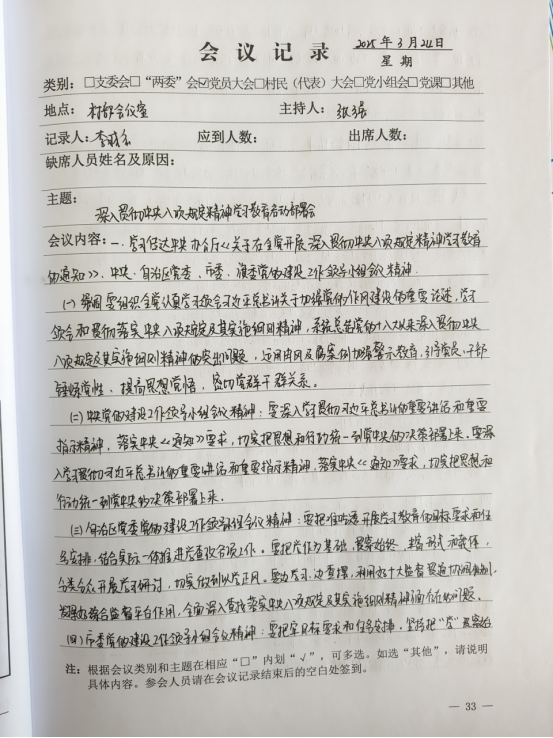 会 议 记 录
2025 年 3 月 24 日
星 期
类别：□支委会□“两委”会☑党员大会□村民（代表）大会□党小组会□党课□其他
地点： 村部会议室 主持人： 张强
记录人： 应到人数： 出席人数：
缺席人员姓名及原因：
主题：
深入贯彻中央八项规定精神学习教育启动部署会
会议内容：一、学习传达中央办公厅《关于在全党开展深入贯彻中央八项规定精神学习教育
的通知》、中央、自治区党委、市委、旗委党的建设工作领导小组会议精神.
(一) 要组织全党认真学习领会习近平总书记关于加强党的作风建设的重要论述，学习
领会和贯彻落实中央八项规定及其实施细则精神，系统总结党的十八大以来深入贯彻中央
八项规定及其实施细则精神的突出问题，运用由风及腐案例加强警示教育，引导党员、干部
锤炼党性、提高思想觉悟，密切党群干群关系。
(二) 中央党的建设工作领导小组会议精神：要深入学习贯彻习近平总书记的重要讲话和重要
指示精神，落实中央《通知》要求，切实把思想和行动统一到党中央的决策部署上来。要深
入学习贯彻习近平总书记的重要讲话和重要指示精神，落实中央《通知》要求，切实把思想和
行动统一到党中央的决策部署上来.
(三) 自治区党委党的建设工作领导小组会议精神：要把准吃透开展学习教育的目标要求和任
务安排，结合实际一体推进学查改各项工作。要把学作为基础，贯穿始终，形式和载体，
分类分众开展学习研讨，切实做到以学正风。要边学习、边查摆，利用好十大监督贯通协同机制，
发挥好综合监督平台作用，全面深入查找落实中央八项规定及其实施细则精神方面存在的问题。
(四) 市委党的建设工作领导小组会议精神：要把牢目标要求和任务安排，坚持把“学”贯穿始
注：根据会议类别和主题在相应“□”内划“√”，可多选。如选“其他”，请说明
具体内容。参会人员请在会议记录结束后的空白处签到。
— 33 —